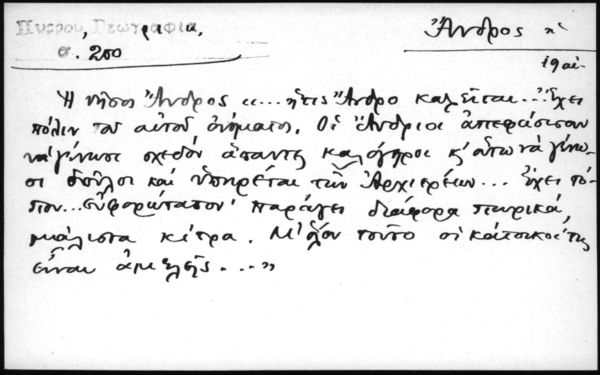 Πύρρου, Γεωγραφία,
σ. 200
Ἄνδρος
19 αἰ.
Ἡ νῆσος Ἄνδρος «... ἥτις Ἄνδρο καλεῖται... Ἔχει
πόλιν τοῦ αὐτοῦ ὀνόματος. Οἱ Ἄνδριοι ἀπεφάσισαν
νὰ γίνωσι σχεδὸν ἅπαντες καλόγηροι κ' οὕτω νὰ γίνω-
σι δοῦλοι καὶ ὑπηρέται τῶν Ἀρχιερέων... Ἔχει τό-
πον... εὐφορώτατον· παράγει διάφορα πωρικά,
μάλιστα κίτρα. Μ' ὅλον τοῦτο οἱ κάτοικοί της
εἶναι ἀμελεῖς...»